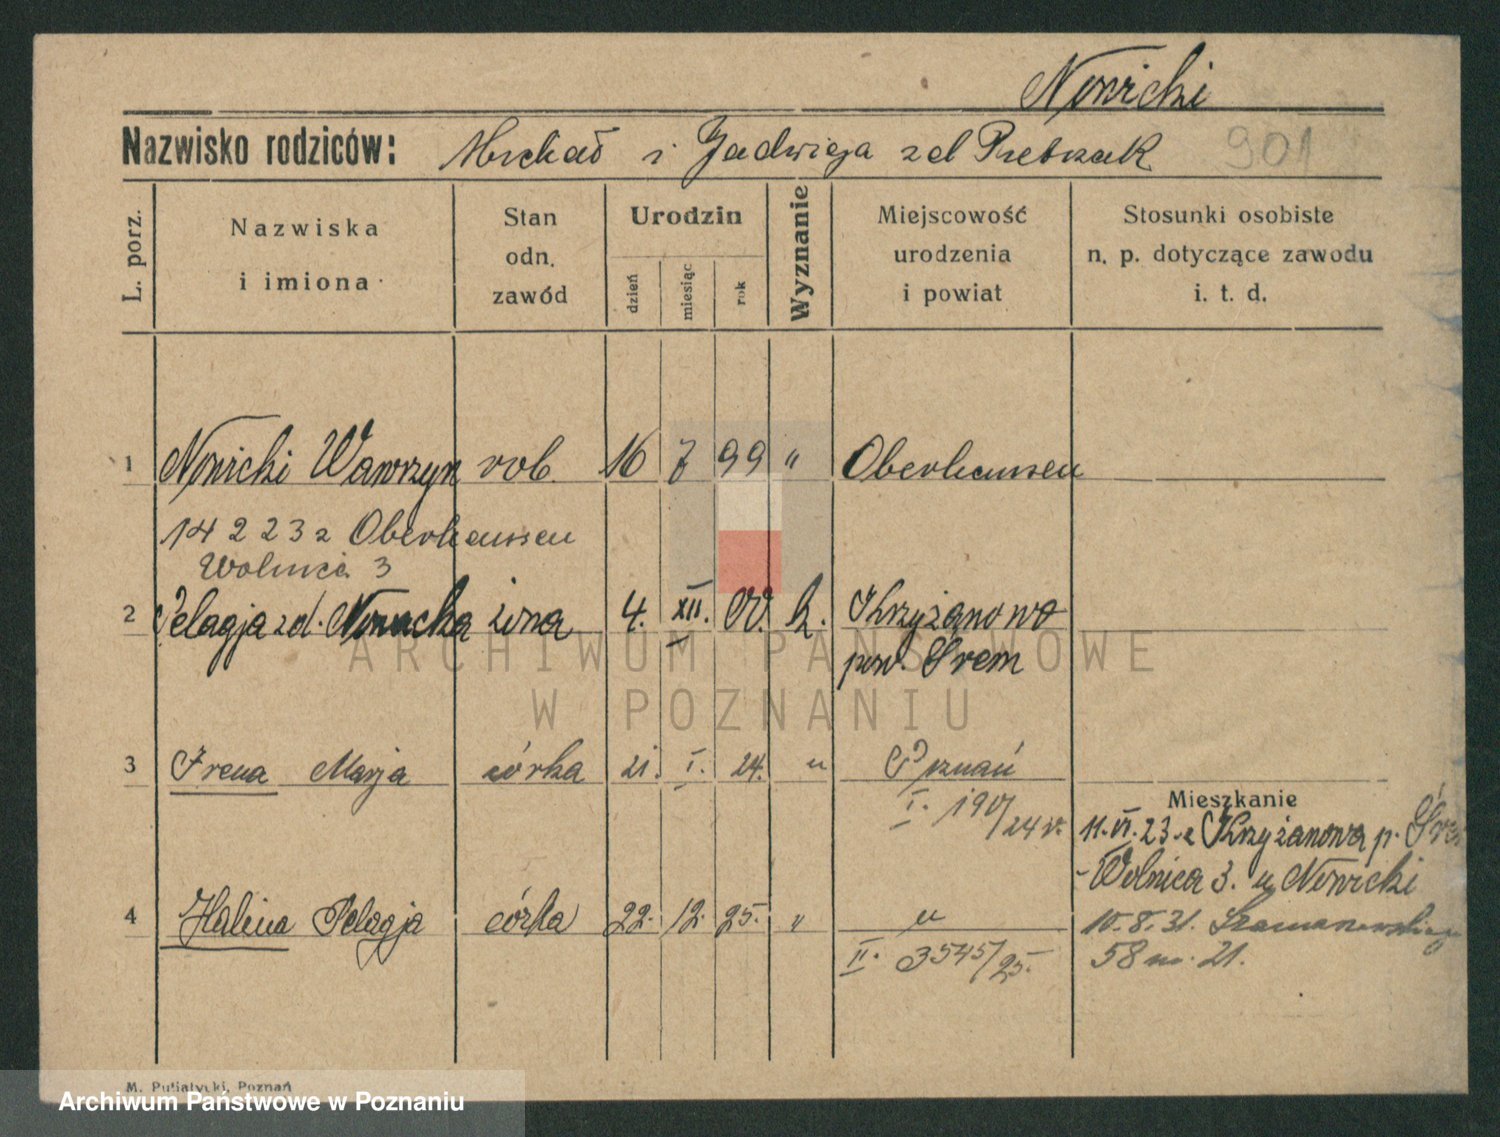 Nowicki
Nazwisko rodziców: Michał i Jadwiga zd Pietrzak 901
L. porz.
Nazwiska
i imiona
Stan
odn.
zawód
Urodzin
dzień
miesiąc
rok
Wyznanie
Miejscowość
urodzenia
i powiat
Stosunki osobiste
n. p. dotyczące zawodu
i. t. d.
1 Nowicki Wawrzyn rob. 16 7 99 " Oberhausen
14 2 23 z Oberhausen
Wolnica 3
2 Pelagja zd. Nowacka żona 4. XII. 00. k. Krzyżanowo
pow. Śrem
3 Irena Marja córka 21. I. 24. " Poznań
I. 190/24 r.
Mieszkanie
11.VI.23 z Krzyżanowa p. Śrem
- Wolnica 3. u Nowicki
4 Halina Pelagja córka 22. 12. 25. " "
II. 3545/25.
10.8.31. Szamarzewskiego
58 m. 21.
M. Putiatycki, Poznań
ARCHIWUM PAŃSTWOWE
W POZNANIU
Archiwum Państwowe w Poznaniu